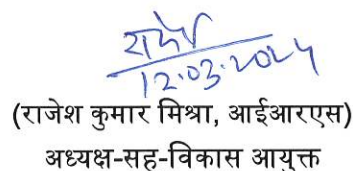 राजेश
12.03.2024
(राजेश कुमार मिश्रा, आईआरएस)
अध्यक्ष-सह-विकास आयुक्त